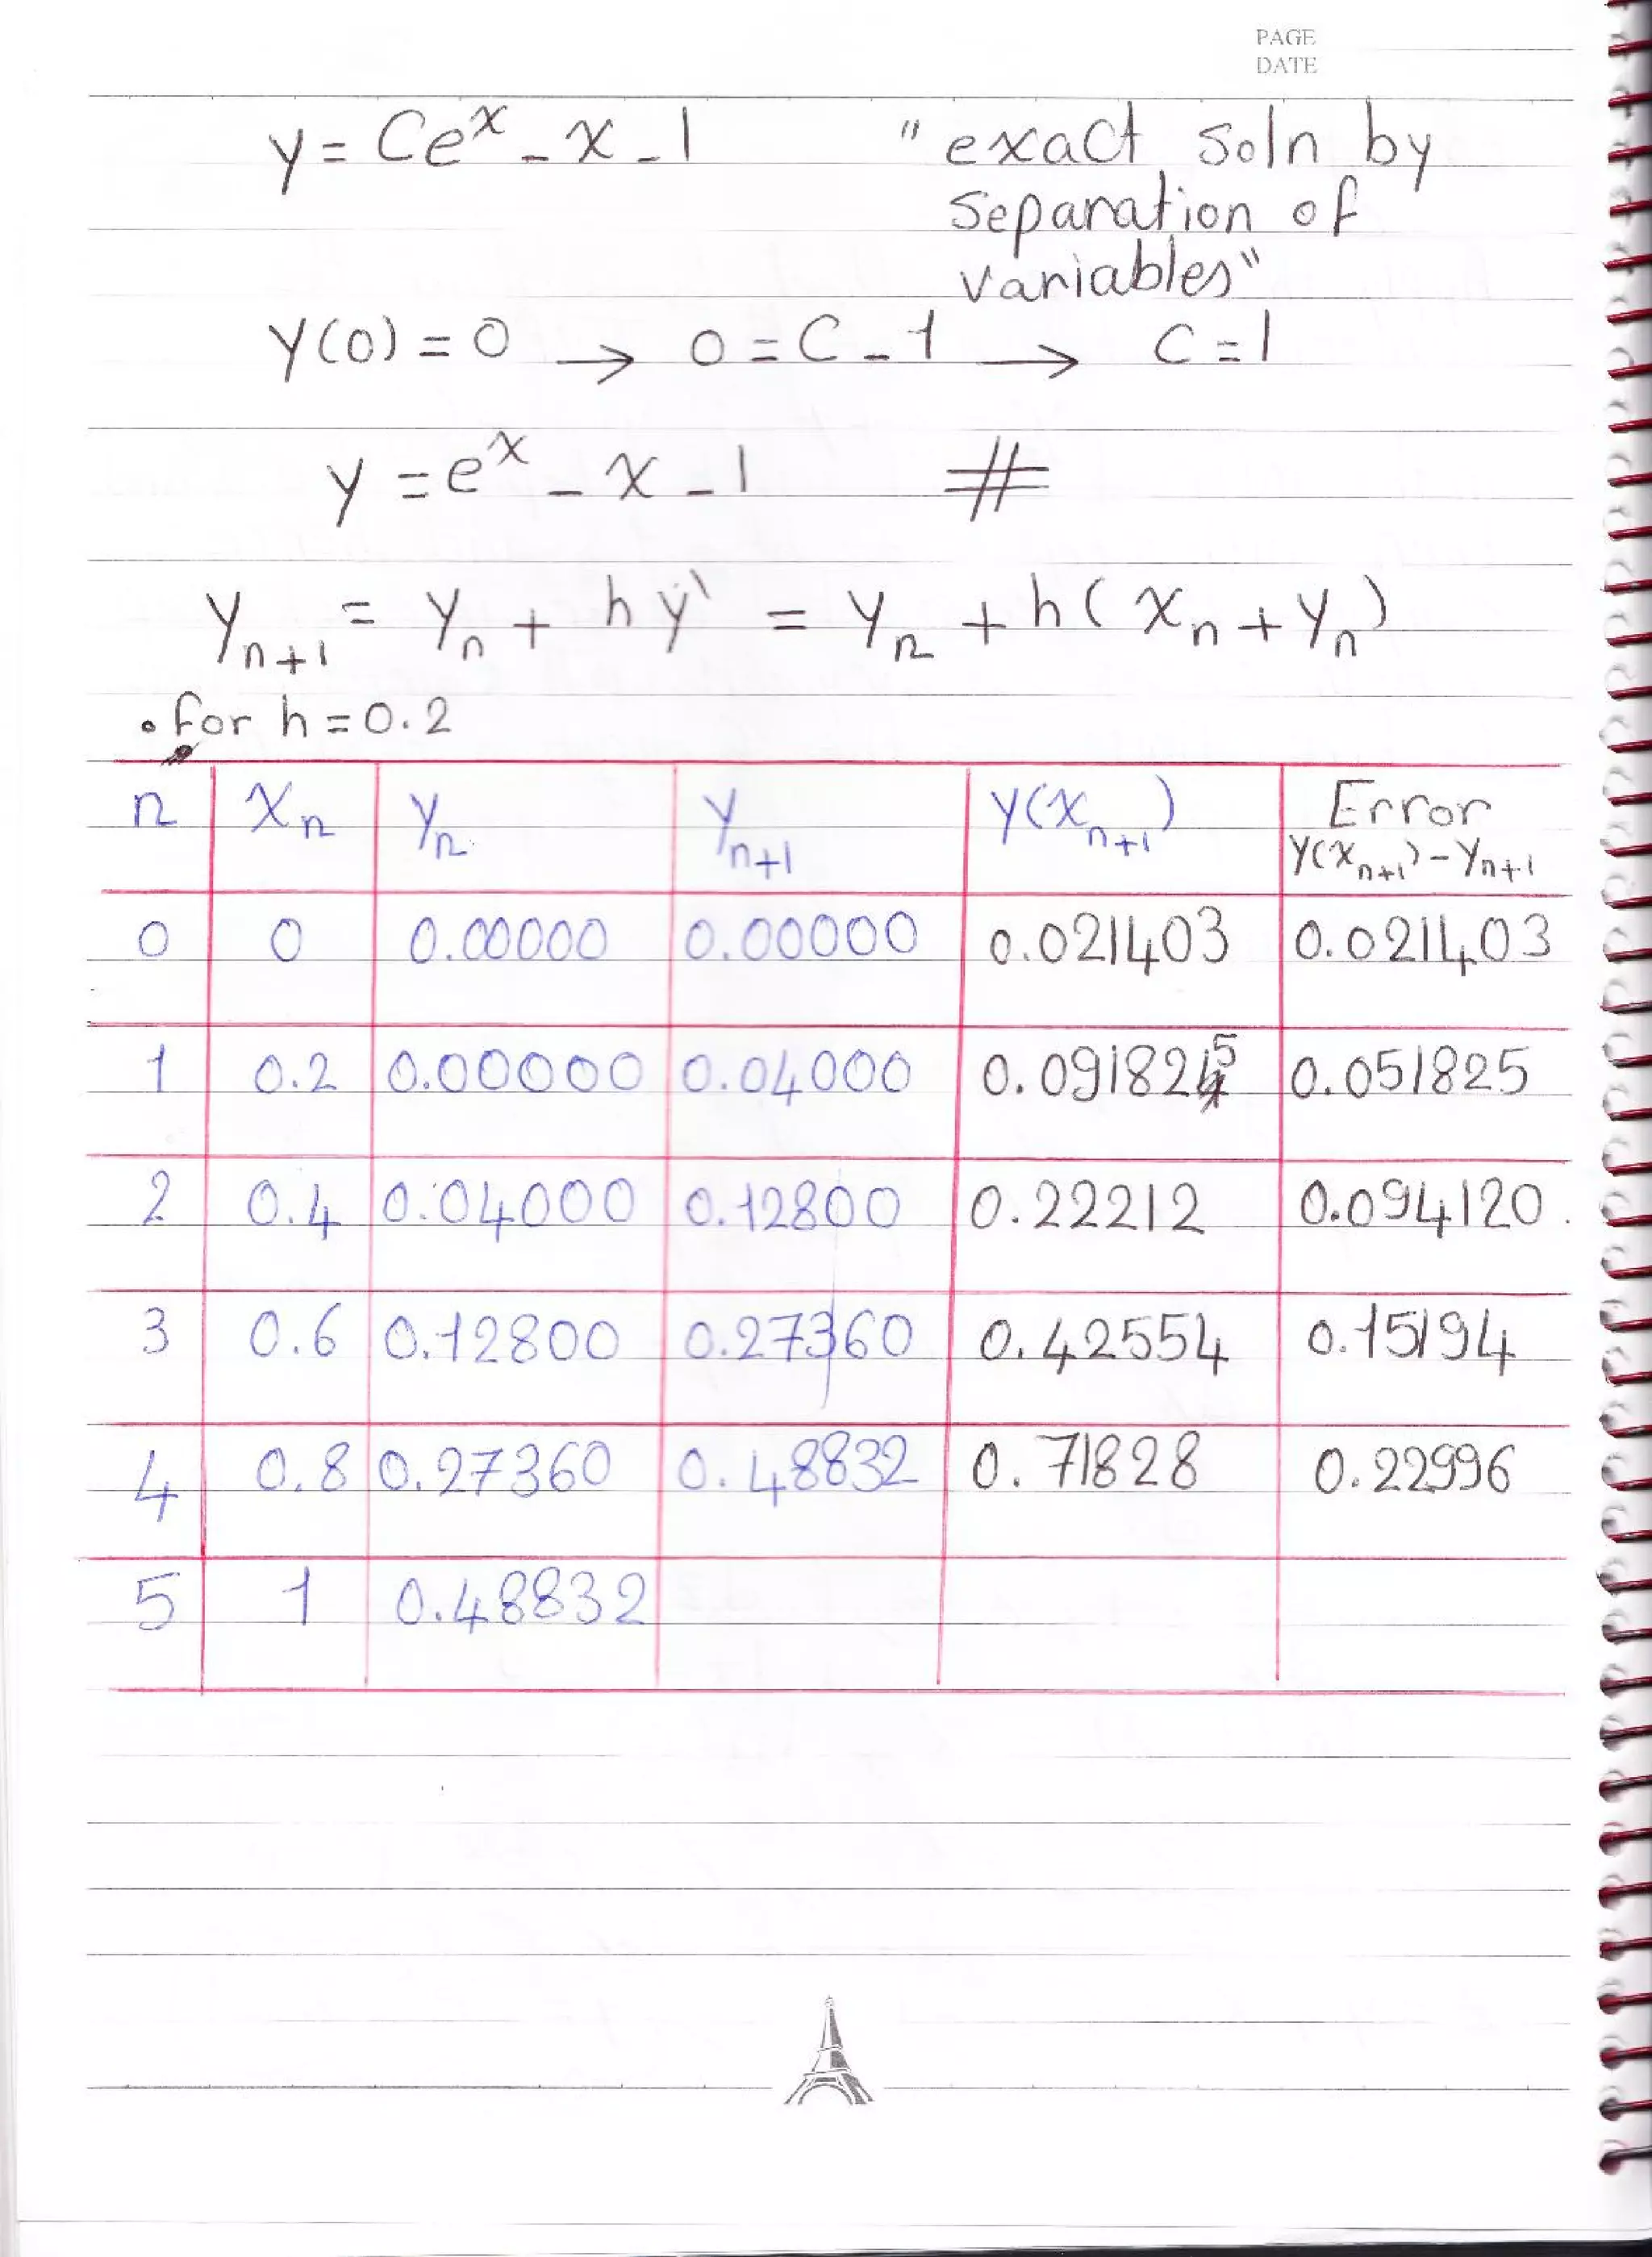 PAGE
DATE
y = Ceˣ - x - 1 "exact soln by
separation of
variables"
y(0) = 0 → 0 = C - 1 → C = 1
y = eˣ - x - 1 #
yₙ₊₁ = yₙ + h y' = yₙ + h(xₙ + yₙ)
• for h = 0.2
n xₙ yₙ yₙ₊₁ y(xₙ₊₁) Error
y(xₙ₊₁) - yₙ₊₁
0 0 0.00000 0.00000 0.021403 0.021403
1 0.2 0.00000 0.04000 0.091825 0.051825
2 0.4 0.04000 0.12800 0.22212 0.094120
3 0.6 0.12800 0.27360 0.42554 0.15194
4 0.8 0.27360 0.48832 0.71828 0.22996
5 1 0.48832